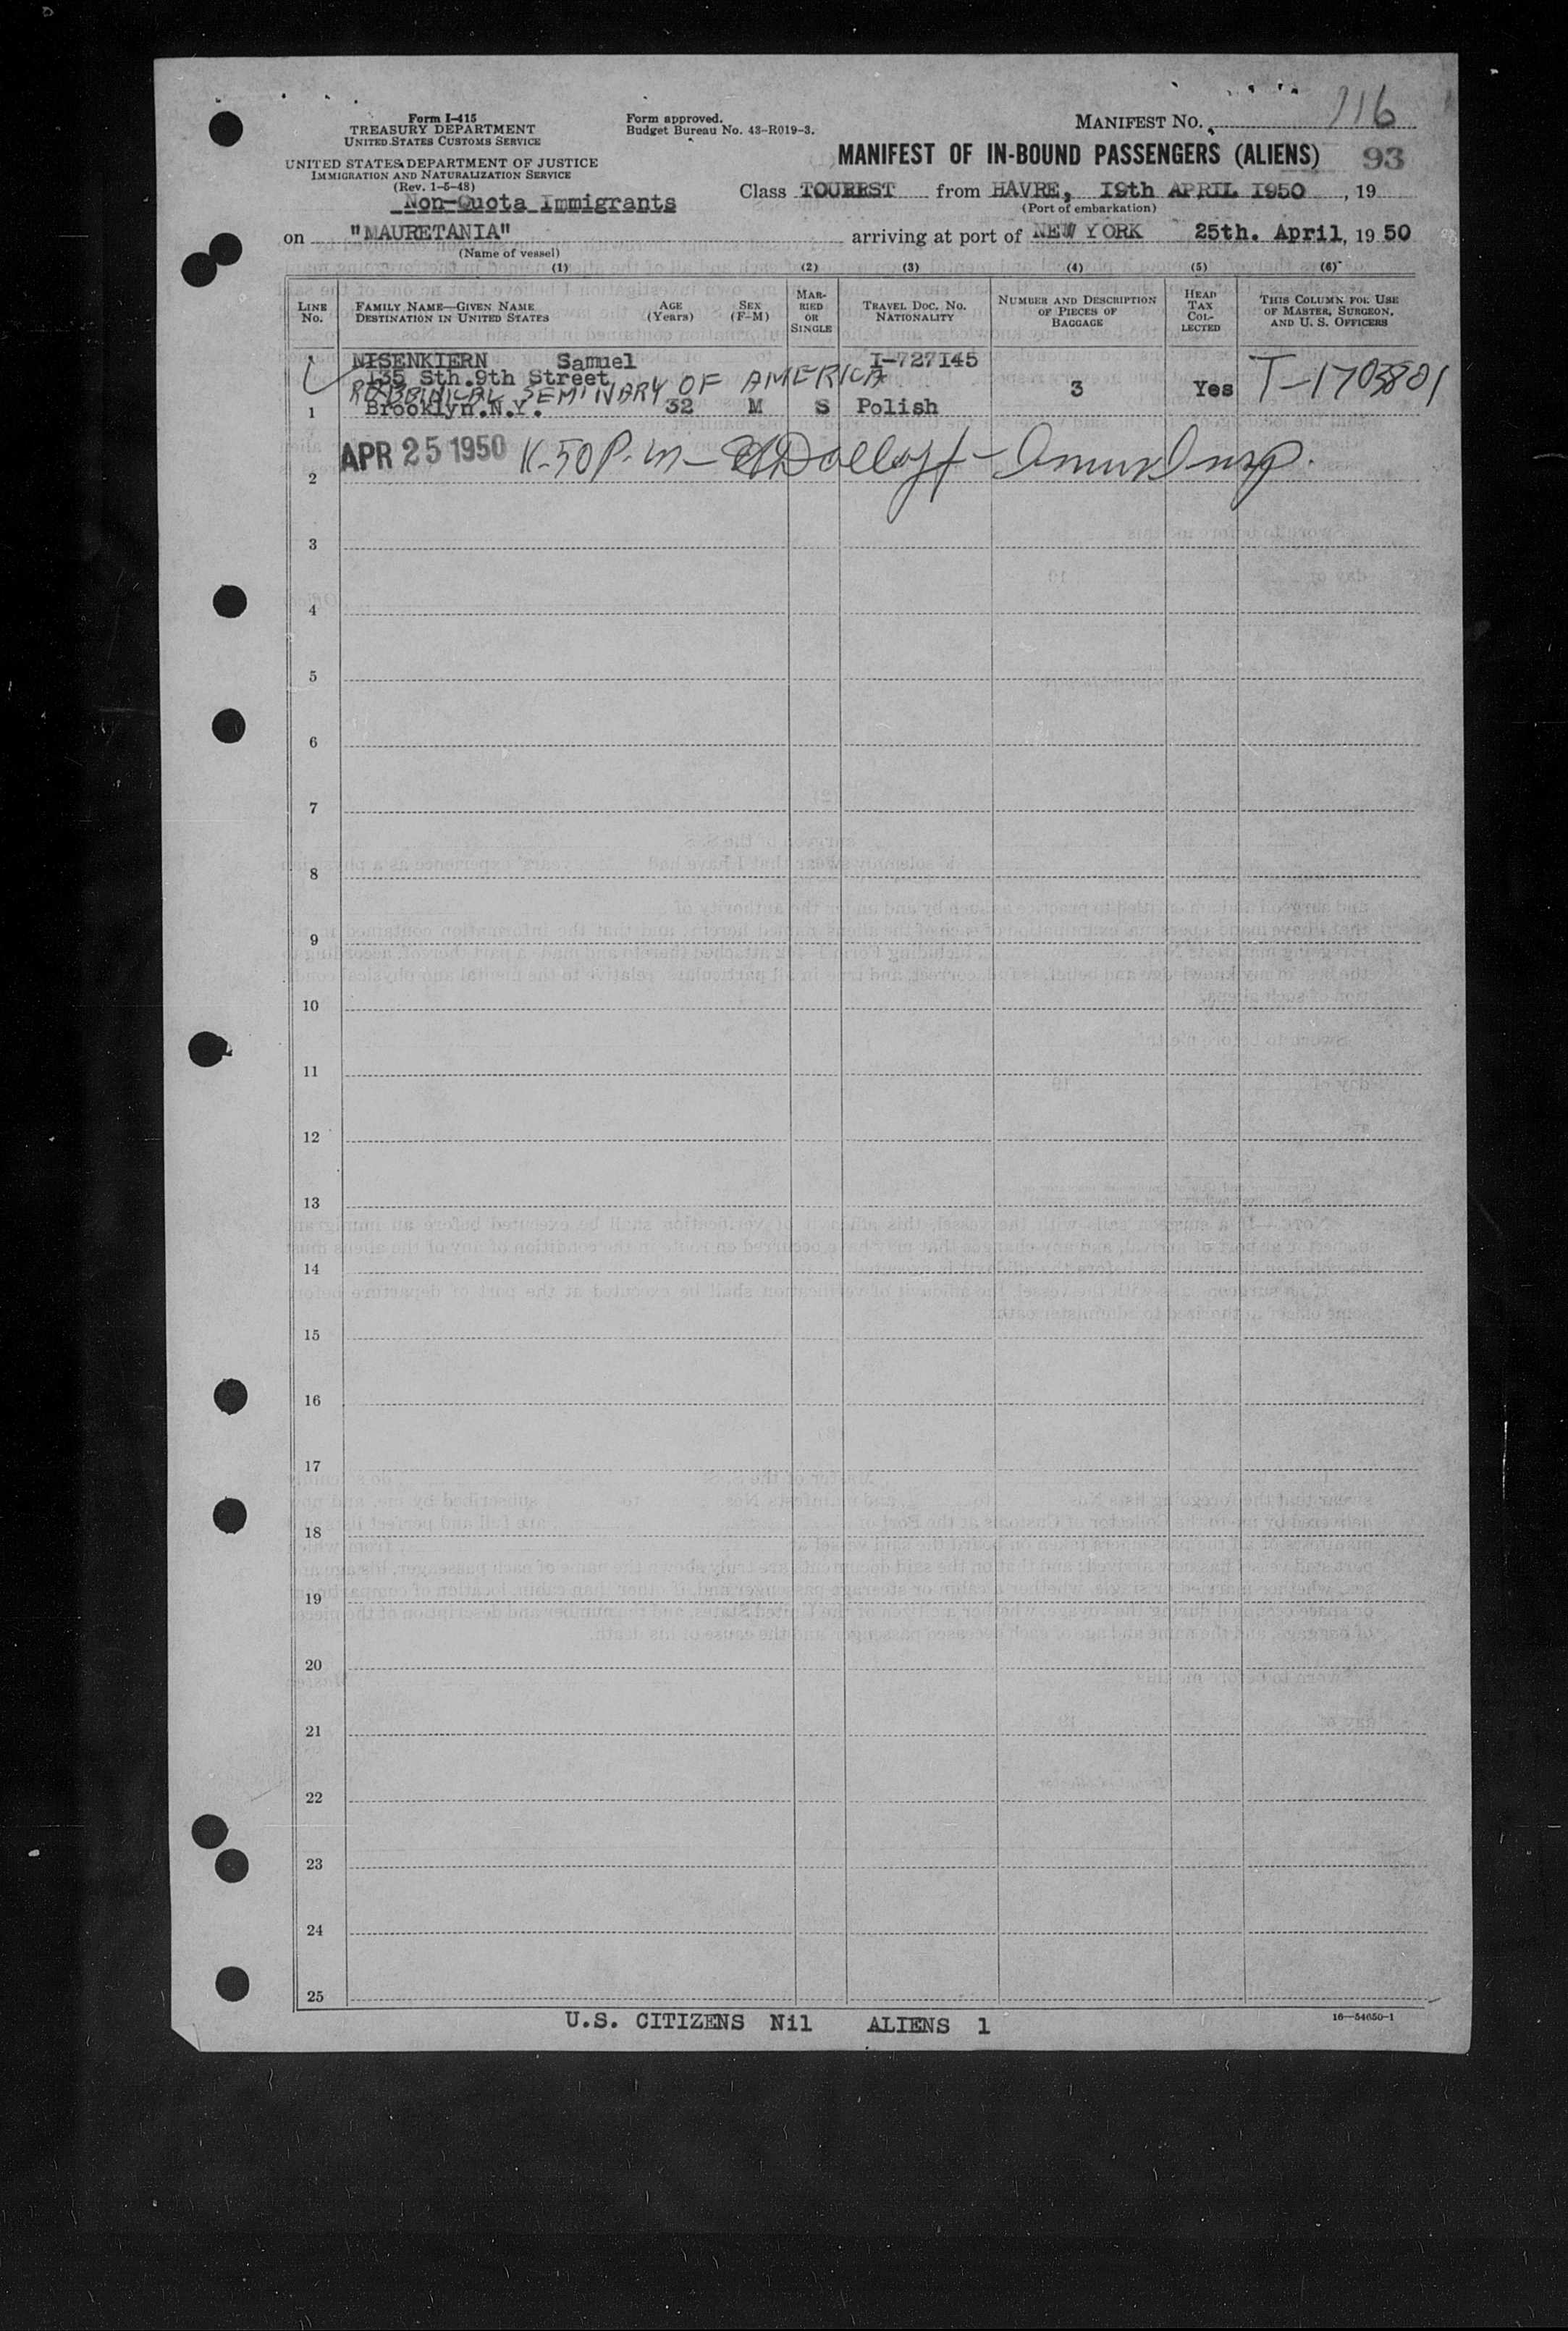 Form I-415
TREASURY DEPARTMENT
UNITED STATES CUSTOMS SERVICE
UNITED STATES DEPARTMENT OF JUSTICE
IMMIGRATION AND NATURALIZATION SERVICE
(Rev. 1-5-48)
Non-Quota Immigrants
Form approved.
Budget Bureau No. 43-R019-3.
MANIFEST NO. 116
MANIFEST OF IN-BOUND PASSENGERS (ALIENS) 93
Class TOURIST from HAVRE, 19th APRIL 1950, 19
(Port of embarkation)
on "MAURETANIA" arriving at port of NEW YORK 25th. April, 19 50
(Name of vessel)
(1) (2) (3) (4) (5) (6)
LINE No. FAMILY NAME—GIVEN NAME DESTINATION IN UNITED STATES AGE (Years) SEX (F-M) MARRIED OR SINGLE TRAVEL DOC. NO. NATIONALITY NUMBER AND DESCRIPTION OF PIECES OF BAGGAGE HEAD TAX COLLECTED THIS COLUMN FOR USE OF MASTER, SURGEON, AND U. S. OFFICERS
NISENKIERN Samuel I-727145
135 Sth.9th Street
RABBINICAL SEMINARY OF AMERICA 3 Yes T-1703801
1 Brooklyn.N.Y. 32 M S Polish
APR 25 1950
2
3
4
5
6
7
8
9
10
11
12
13
14
15
16
17
18
19
20
21
22
23
24
25
U.S. CITIZENS Nil ALIENS 1
16—54650-1